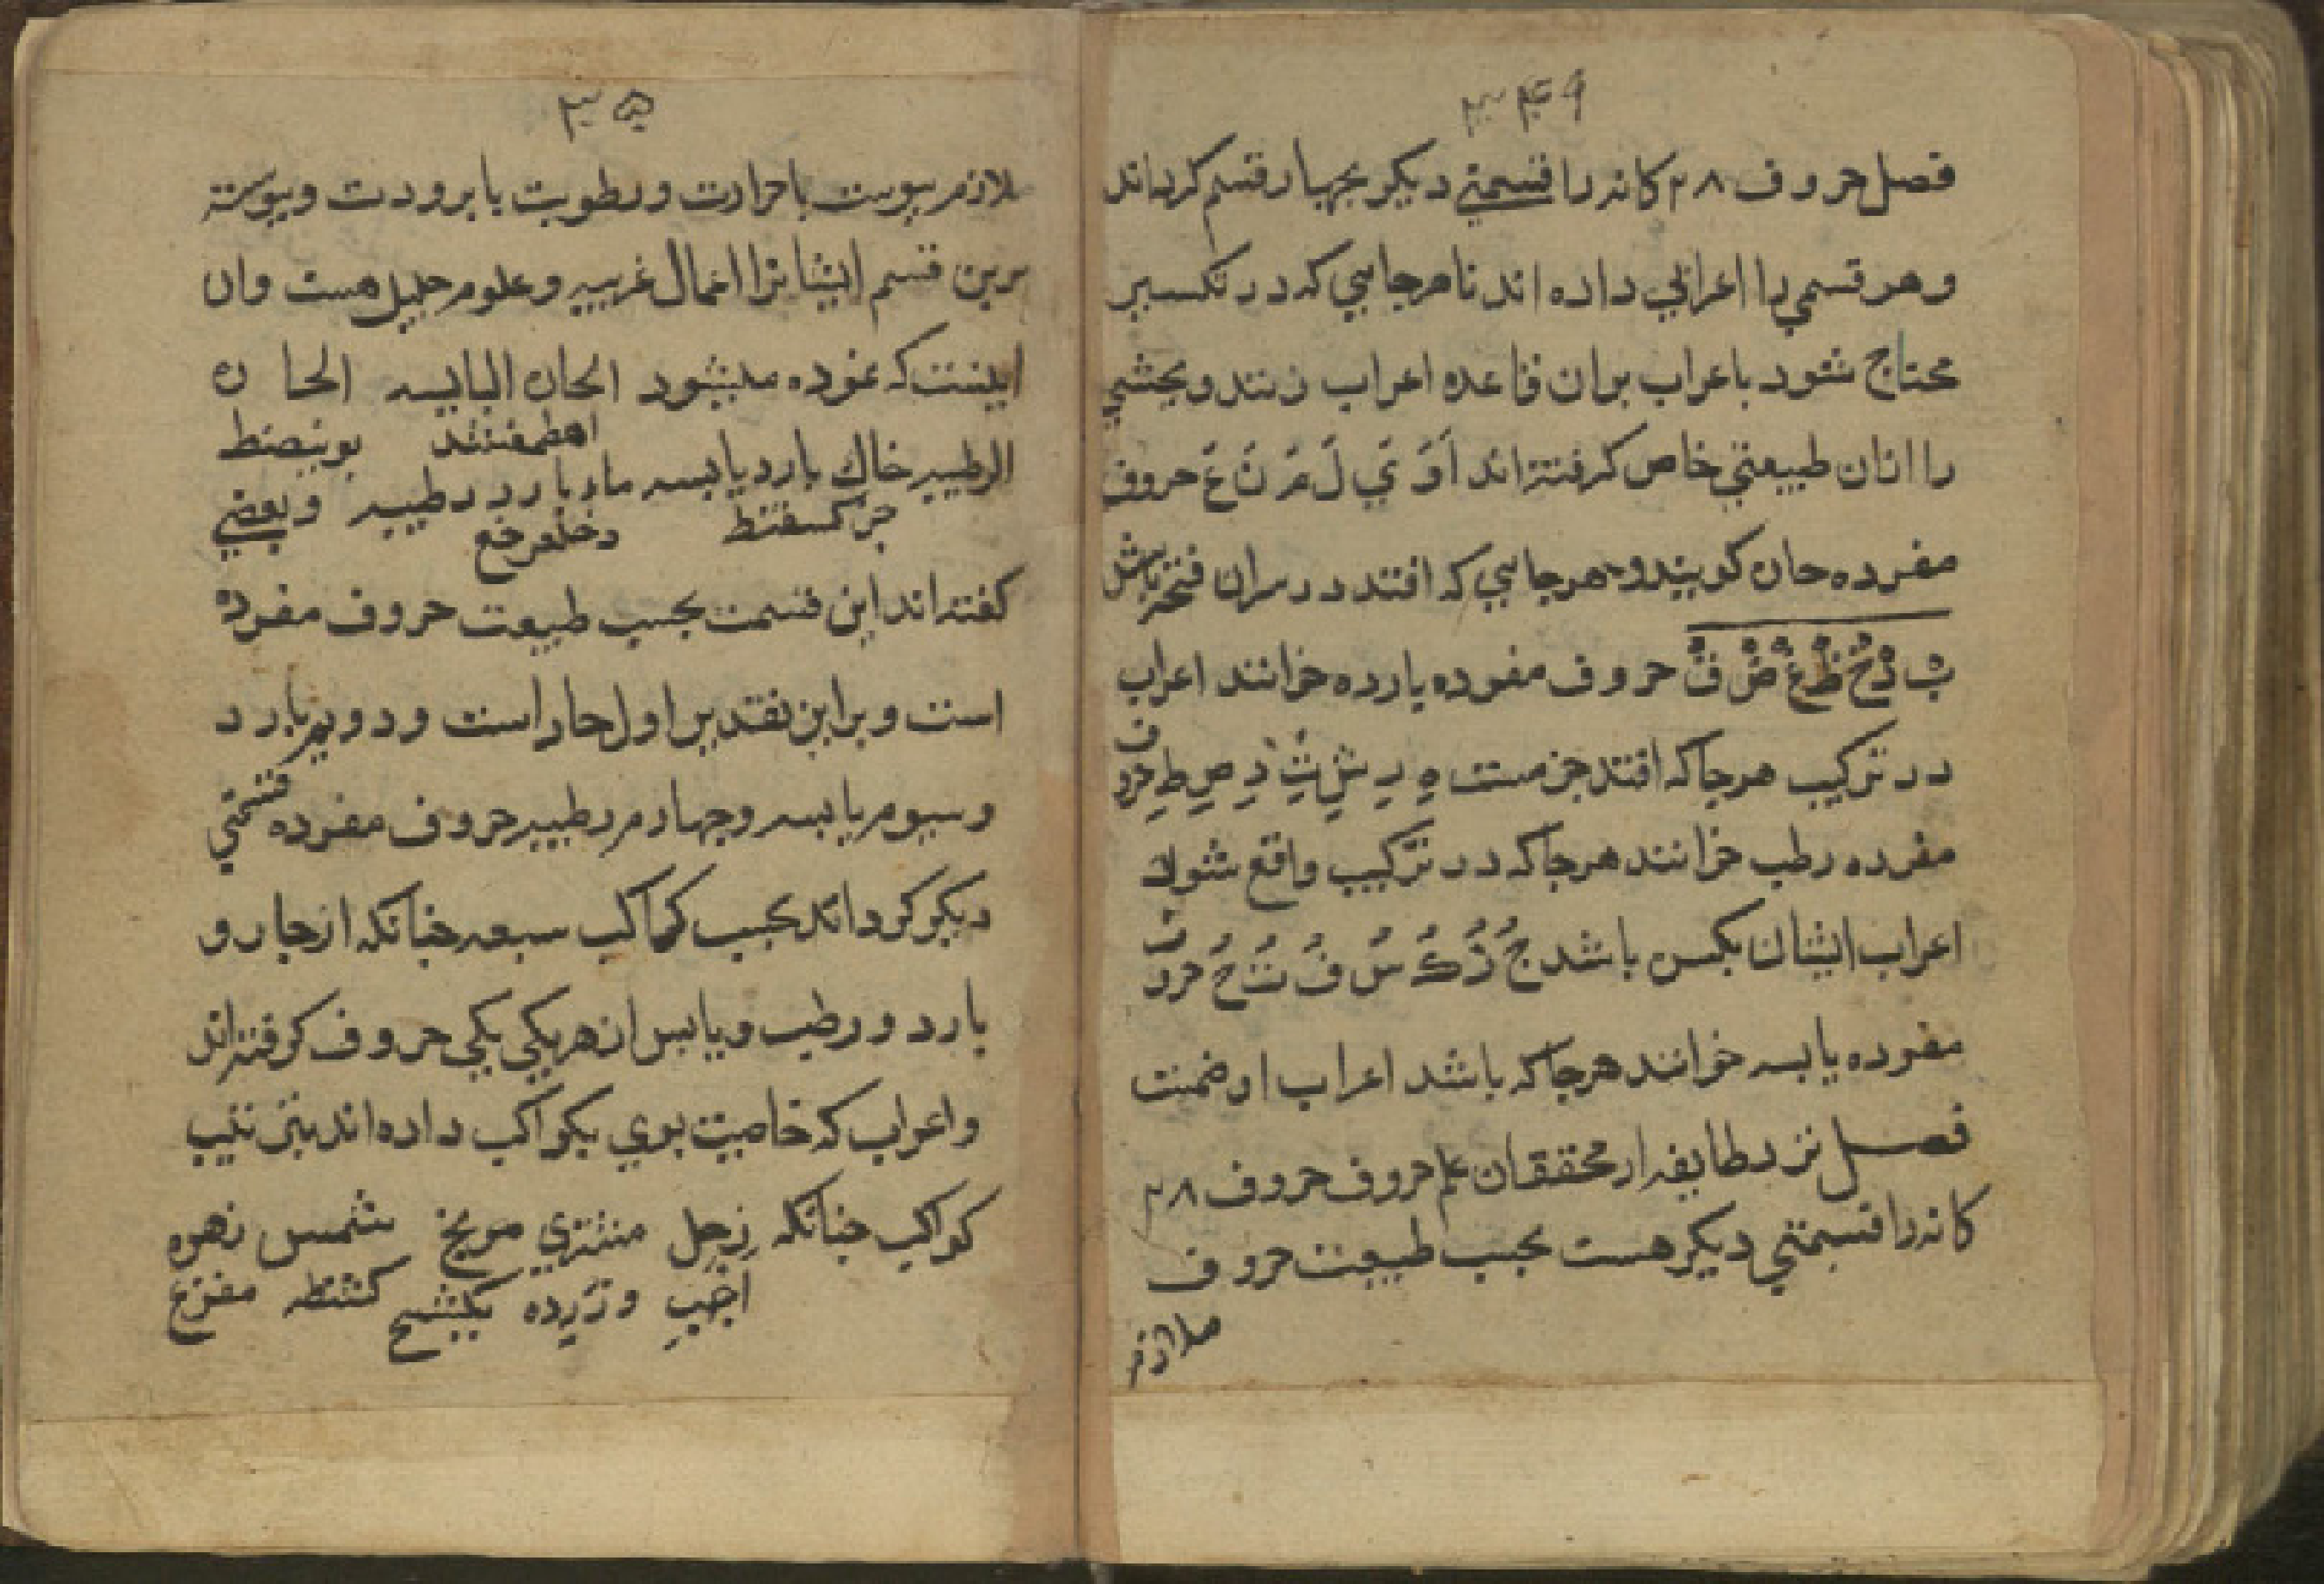 ۳۴۹
فصل حروف ۲۸ کانه را قسمتي دیکر بچهار قسم کرده‌اند
و هر قسمي را اعرابي داده اند تا هر جایي که در تکسیر
محتاج شود باعراب بران قاعده اعراب زنند و بخشي
را ازان طبیعتي خاص کرفته اند اَ وَ يَ لَ مَ نَ عَ حروف
مفرده حان کویند و هر جایي که افتد در سران فتحه باشد
حروف مفرده بارده خوانند اعراب
در ترکیب هر جا که افتد جزمست هِ رِ شِ ثِ ذِ صِ طِ حروف
مفرده رطب خوانند هر جا که در ترکیب واقع شود
اعراب ایشان بکسر باشد جُ زُ كُ سُ قُ تُ حُ حروف
مفرده یابسه خوانند هر جا که باشد اعراب او ضمنت
فصل نزد طایفه از محققان علم حروف حروف ۲۸
کانه را قسمتي دیکر هست بحسب طبیعت حروف
ملازم
۳۵
ملازم یبوست با حرارت و رطوبت با برودت و پیوسته
برین قسم ایشانرا اعمال غریبه و علوم جلیل هست وان
اینست که نموده میشود الحان الیابسه الحان
اهطمفشذ بوینصتط
الرطبیه خاك بارد یابسه ماء بارد رطبیه و بعضي
جزکسقثظ دخلعرخغ
کفته اند این قسمت بحسب طبیعت حروف مفرده
است و براین تقدیر اول حار است و دویم بارد
و سیوم یابسه و چهارم رطبیه حروف مفرده قسمتي
دیکر کرده اند بحسب کواکب سبعه چنانکه از حار و
بارد و رطب و یابس از هر یکي یکي حروف کرفته اند
و اعراب که خاصیت بوي بکواکب داده اند بترتیب
کواکب چنانکه زحل مشتري مریخ شمس زهره
اجب وزرده یکشح کشظه مفزع